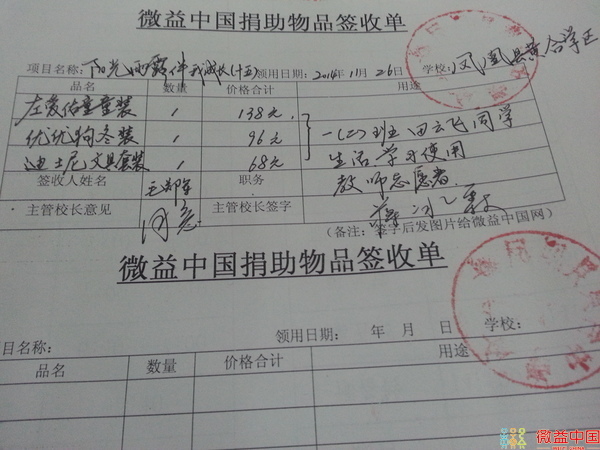 微益中国捐助物品签收单
项目名称:阳光雨露伴我成长(十五) 领用日期:2014年11月26日 学校:凤凰县黄合学区
品名 数量 价格合计 用途
童装 1 138元
优优狗冬装 1 96元 一(二)班田云飞同学
迪士尼文具套装 1 68元 生活学习使用
签收人姓名 职务 教师志愿者
主管校长意见 同意 主管校长签字
(备注:签字后发图片给微益中国网)
微益中国捐助物品签收单
项目名称: 领用日期: 年 月 日 学校:
品名 数量 价格合计 用途
微益中国